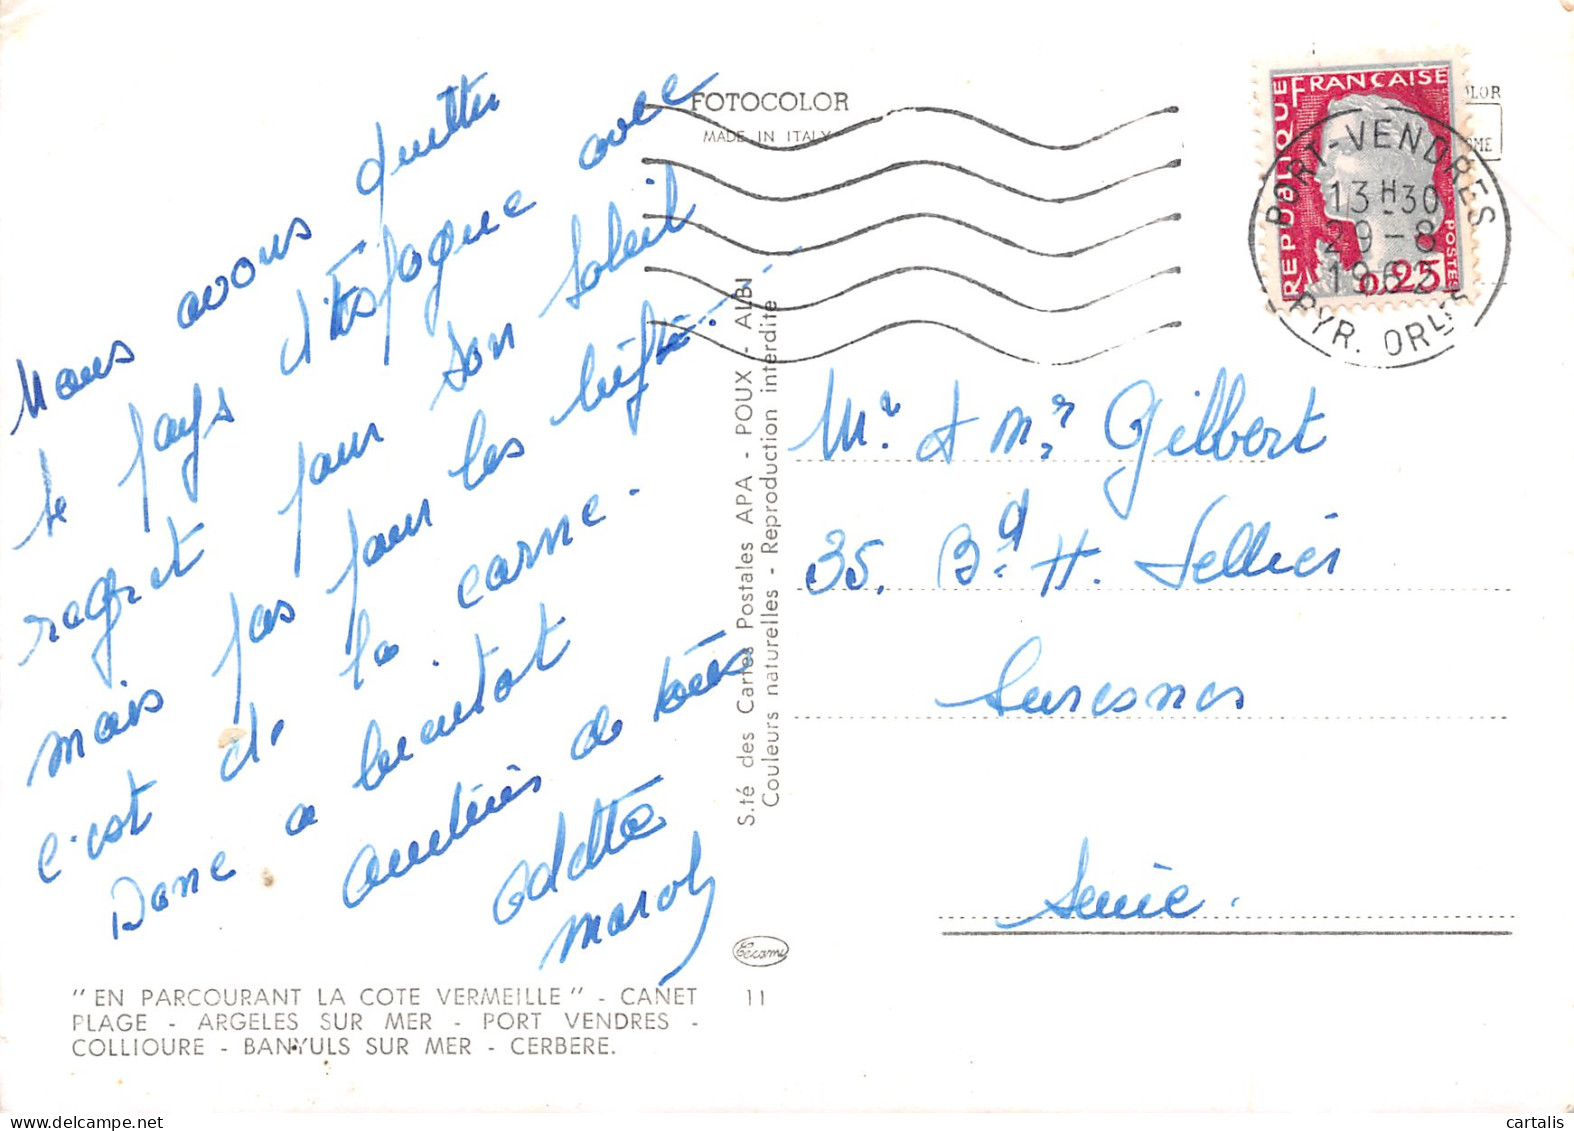 Nous avons quitter
le pays d'Espagne avec
regret pour son soleil
mais pas pour les
c'est de la carne.
Donc a bientot
amitiés de
Odette
FOTOCOLOR
MADE IN ITALY
REPUBLIQUE FRANÇAISE
POSTES
0,25
PORT-VENDRES
13H30
29-8
PYR. ORLES
S.té des Cartes Postales APA - POUX - ALBI
Couleurs naturelles - Reproduction interdite
Mr. & Mr Gilbert
35, Bd. H. Sellier
Suresnes
Seine.
"EN PARCOURANT LA COTE VERMEILLE" - CANET
PLAGE - ARGELES SUR MER - PORT VENDRES -
COLLIOURE - BANYULS SUR MER - CERBERE.
11
cartalis
delcampe.net